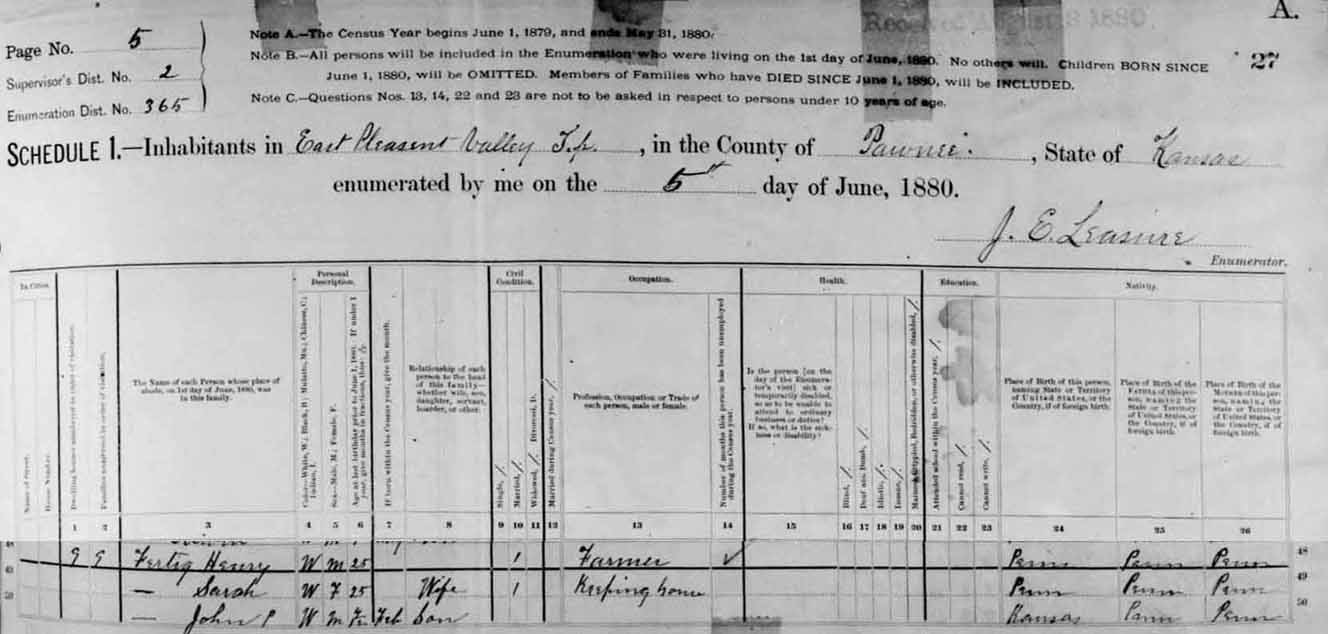 A.
Received August 3 1880
Page No. 5
Supervisor's Dist. No. 2
Enumeration Dist. No. 365
Note A.—The Census Year begins June 1, 1879, and ends May 31, 1880.
Note B.—All persons will be included in the Enumeration who were living on the 1st day of June, 1880. No others will. Children BORN SINCE
June 1, 1880, will be OMITTED. Members of Families who have DIED SINCE June 1, 1880, will be INCLUDED.
Note C.—Questions Nos. 13, 14, 22 and 23 are not to be asked in respect to persons under 10 years of age.
27
SCHEDULE 1.—Inhabitants in East Pleasent Valley Tp. , in the County of Pawnee , State of Kansas
enumerated by me on the 5 day of June, 1880.
J. E. Leasure
Enumerator.
In Cities.
Name of Street.
House Number.
Dwelling houses numbered in order of visitation.
Families numbered in order of visitation.
The Name of each Person whose place of
abode, on 1st day of June, 1880, was
in this family.
Personal
Description.
Color—White, W; Black, B; Mulatto, Mu; Chinese, C;
Indian, I.
Sex—Male, M; Female, F.
Age at last birthday prior to June 1, 1880. If under 1
year, give months in fractions, thus: 3/12.
If born within the Census year, give the month.
Relationship of each
person to the head
of this family—
whether wife, son,
daughter, servant,
boarder, or other.
Civil
Condition.
Single, /.
Married, /.
Widowed, /. Divorced, D.
Married during Census year, /.
Occupation.
Profession, Occupation or Trade of
each person, male or female.
Number of months this person has been unemployed
during the Census year.
Health.
Is the person [on the
day of the Enumera-
tor's visit] sick or
temporarily disabled,
so as to be unable to
attend to ordinary
business or duties?
If so, what is the sick-
ness or disability?
Blind, /.
Deaf and Dumb, /.
Idiotic, /.
Insane, /.
Maimed, Crippled, Bedridden, or otherwise disabled, /.
Education.
Attended school within the Census year, /.
Cannot read, /.
Cannot write, /.
Nativity.
Place of Birth of this person,
naming State or Territory
of United States, or the
Country, if of foreign birth.
Place of Birth of the
FATHER of this per-
son, naming the
State or Territory
of United States, or
the Country, if of
foreign birth.
Place of Birth of the
MOTHER of this per-
son, naming the
State or Territory
of United States, or
the Country, if of
foreign birth.
1 2 3 4 5 6 7 8 9 10 11 12 13 14 15 16 17 18 19 20 21 22 23 24 25 26
9 9 Fertig Henry W M 25 1 Farmer Penn Penn Penn 48
49 — Sarah W F 25 Wife 1 Keeping house Penn Penn Penn 49
50 — John P W M Feb Son Kansas Penn Penn 50